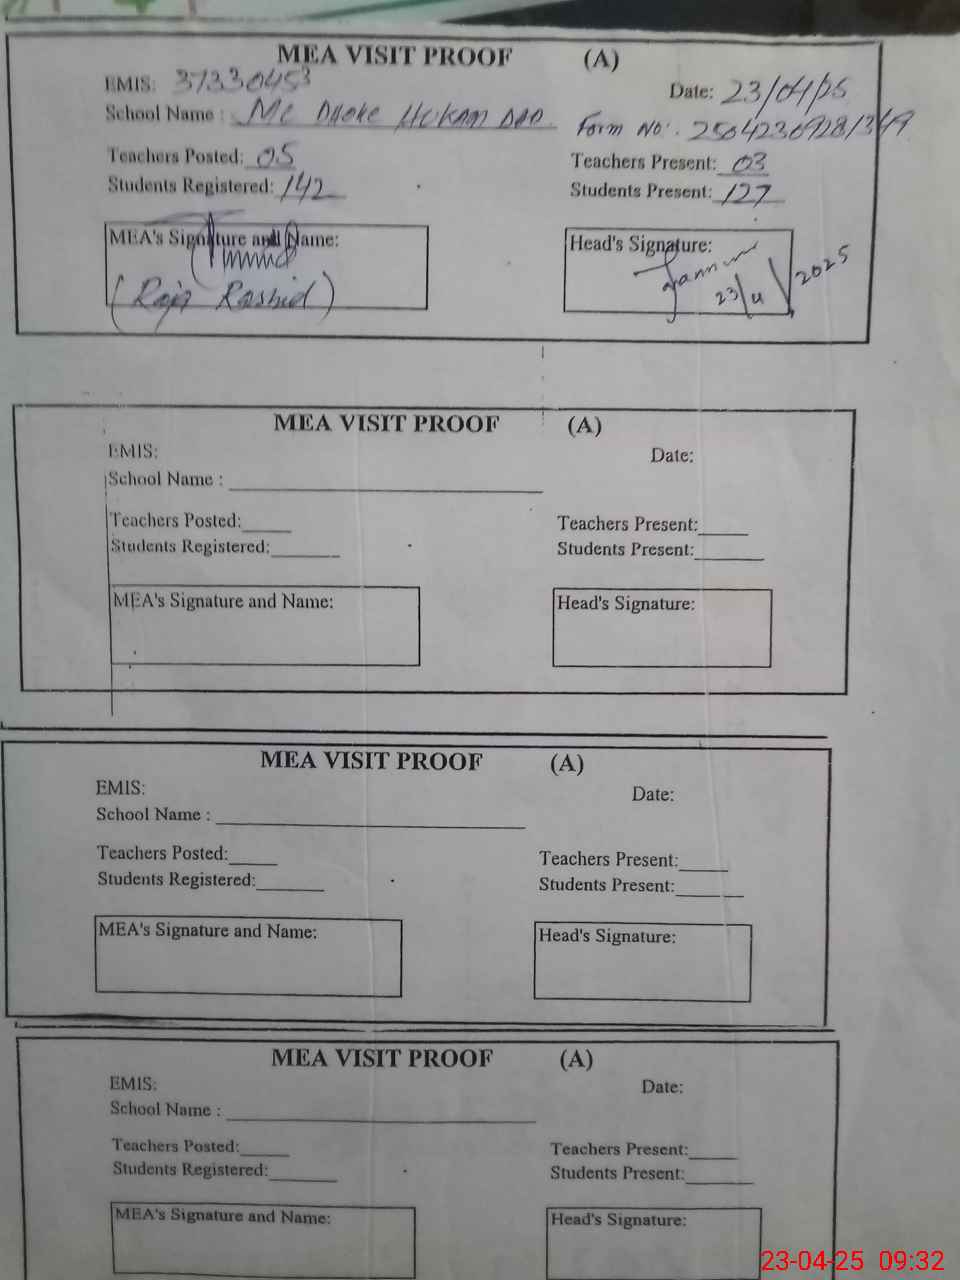 MEA VISIT PROOF (A)
EMIS: 37330453 Date: 23/04/25
School Name : MC DHOKE HUKAM DAD Form No:. 25042309281349
Teachers Posted: 05 Teachers Present: 03
Students Registered: 142 Students Present: 127
MEA's Signature and Name: Head's Signature:
(Raja Rashid) 23/4/2025
MEA VISIT PROOF (A)
EMIS: Date:
School Name :
Teachers Posted: Teachers Present:
Students Registered: Students Present:
MEA's Signature and Name: Head's Signature:
MEA VISIT PROOF (A)
EMIS: Date:
School Name :
Teachers Posted: Teachers Present:
Students Registered: Students Present:
MEA's Signature and Name: Head's Signature:
MEA VISIT PROOF (A)
EMIS: Date:
School Name :
Teachers Posted: Teachers Present:
Students Registered: Students Present:
MEA's Signature and Name: Head's Signature:
23-04-25 09:32